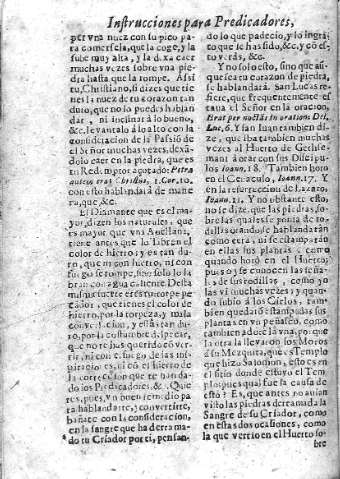 Instrucciones para Predicadores,
per vna nuez con su pico pa
ra comersela, que la coge, y la
sube muy alta, y la dexa caer
muchas vezes sobre vna pie
dra hasta que la rompe. Assi
tu, Christiano, si dizes que tie
nes la nuez de tu corazon tan
duro, que no lo puedes hablan
dar, ni inclinar à lo bueno,
&c. leuantalo à lo alto con la
consideracion de la Passiō de
el Señor muchas vezes, dexā
dolo caer en la piedra, que es
tu Redemptor açotado: Petra
autem erat Christus, 1. Cor. 10.
con esto hablandarà de mane
ra, que &c.
El Diamante que es el ma
yor, dizen los naturales, que
es mayor que vna Auellana,
tiene antes que lo labren el
color de hierro; y es tan du
ro, que ni con hierro, ni con
fuego se rompe, sino solo la
bran con agua caliente. Desta
misma suerte eres tu torpe pe
cador, que tienes el color de
hierro, por la torpeza, y mala
y estàs tan du
ro, por la costumbre de pecar,
que no te has querido cōver
tir, ni con el fuego de las ins
piraciones, ni cō el hierro de
la correccion que te han da
do los Predicadores, &c. Quie
res, pues, vn buen remedio pa
ra hablandarte, y conuertirte,
bañate con la consideracion,
en la sangre que ha derrama
do tu Criador por ti, pensan-
do lo que padecio, y lo ingra
to que te has sido, &c. y cō es
to veràs, &c.
Y no solo esto, sino que aū
que sea tu corazon de piedra,
se hablandarà. San Lucas re
fiere, que frequentemente es
taua el Señor en la oracion,
Erat per noctes in oration: Dei,
Luc. 6. Y san Juan tambien di
ze, que iba tambien muchas
vezes al Huerto de Gethse
mani à orar con sus Discipu
los Ioann. 18. Tambien horò
en el Cenaculo, Ioann. 17. Y
en la resurreccion de Lazaro,
Ioann. 11. Y no obstante esto,
no se dize, que las piedras, so
bre las quales se ponia de ro
dillas orando se hablandaràn
como cera, ni se estamparàn
en ellas sus plantas, como
quando horò en el Huerto;
pues oy se conocen las seña-
ls de sus rodillas, como yo
las vì muchas vezes; y quan
do subio à los Cielos, tam
bien quedarō estampadas sus
plantas en vn peñasco, como
tambien adorè la vna, porque
la otra la lleuaron los Moros
à su Mezquita, que es Templo
que hizo Salomon, esto es en
el sitio donde estuvo el Tem
plo: pues qual fue la causa de
esto? Es, que antes no auian
visto las piedras derramada la
Sangre de su Criador, como
en estas dos ocasiones, como
la que vertio en el Huerto so-
bre